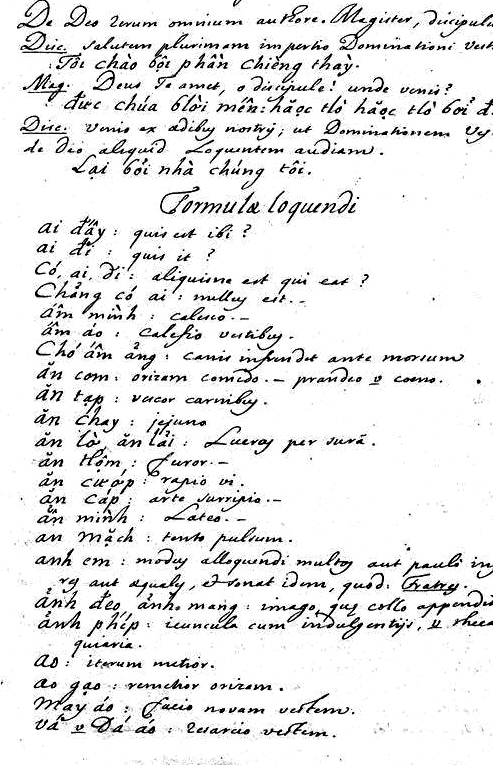 De Deo rerum omnium authore. Magister, discipulu
Disc. salutem plurimam impertio Dominationi vest
: Tôi chào bội phần chiềng thầy.
Mag. Deus Te amet, o discipule! unde venis?
đức chúa blời mến: hặoc tlò hặoc tlò bởi đ
Disc. venio ex ædibus nostris; ut Dominationem Ves
de deo aliquid Loquentem audiam.
Lại bởi nhà chúng tôi.
Formulæ loquendi
ai đấy : quis est ibi?
ai đi : quis it?
Có, ai, đi : aliquisne est qui eat?
Chẳng có ai : nullus est. -
ấm mình : calesco. -
ấm áo : calefio vestibus.
Chó ấm ẳng : canis infrendet ante morsum
ăn com : orizam comedo. - prandeo v coeno.
ăn tạp : vescor carnibus.
ăn chay : jejuno
ăn lờ, ăn lãi : Lucror per
ăn tlộm : furor. -
ăn cướp : rapio vi.
ăn cáp : arte surripio. -
ẩn mình : Lateo. -
an mặch : tento pulsum.
anh em : modus alloquendi multos aut pauli in
res aut æquales, et sonat idem, quod: Fratres.
ảnh đeo, ảnh mang : imago, quæ collo appendit
ảnh phép : icuncula cum indulgentijs, v
quiaria.
ao : iterum metior.
ao gạo : remetior orizam.
May áo : facio novam vestem.
vá v Dá áo : resarcio vestem.